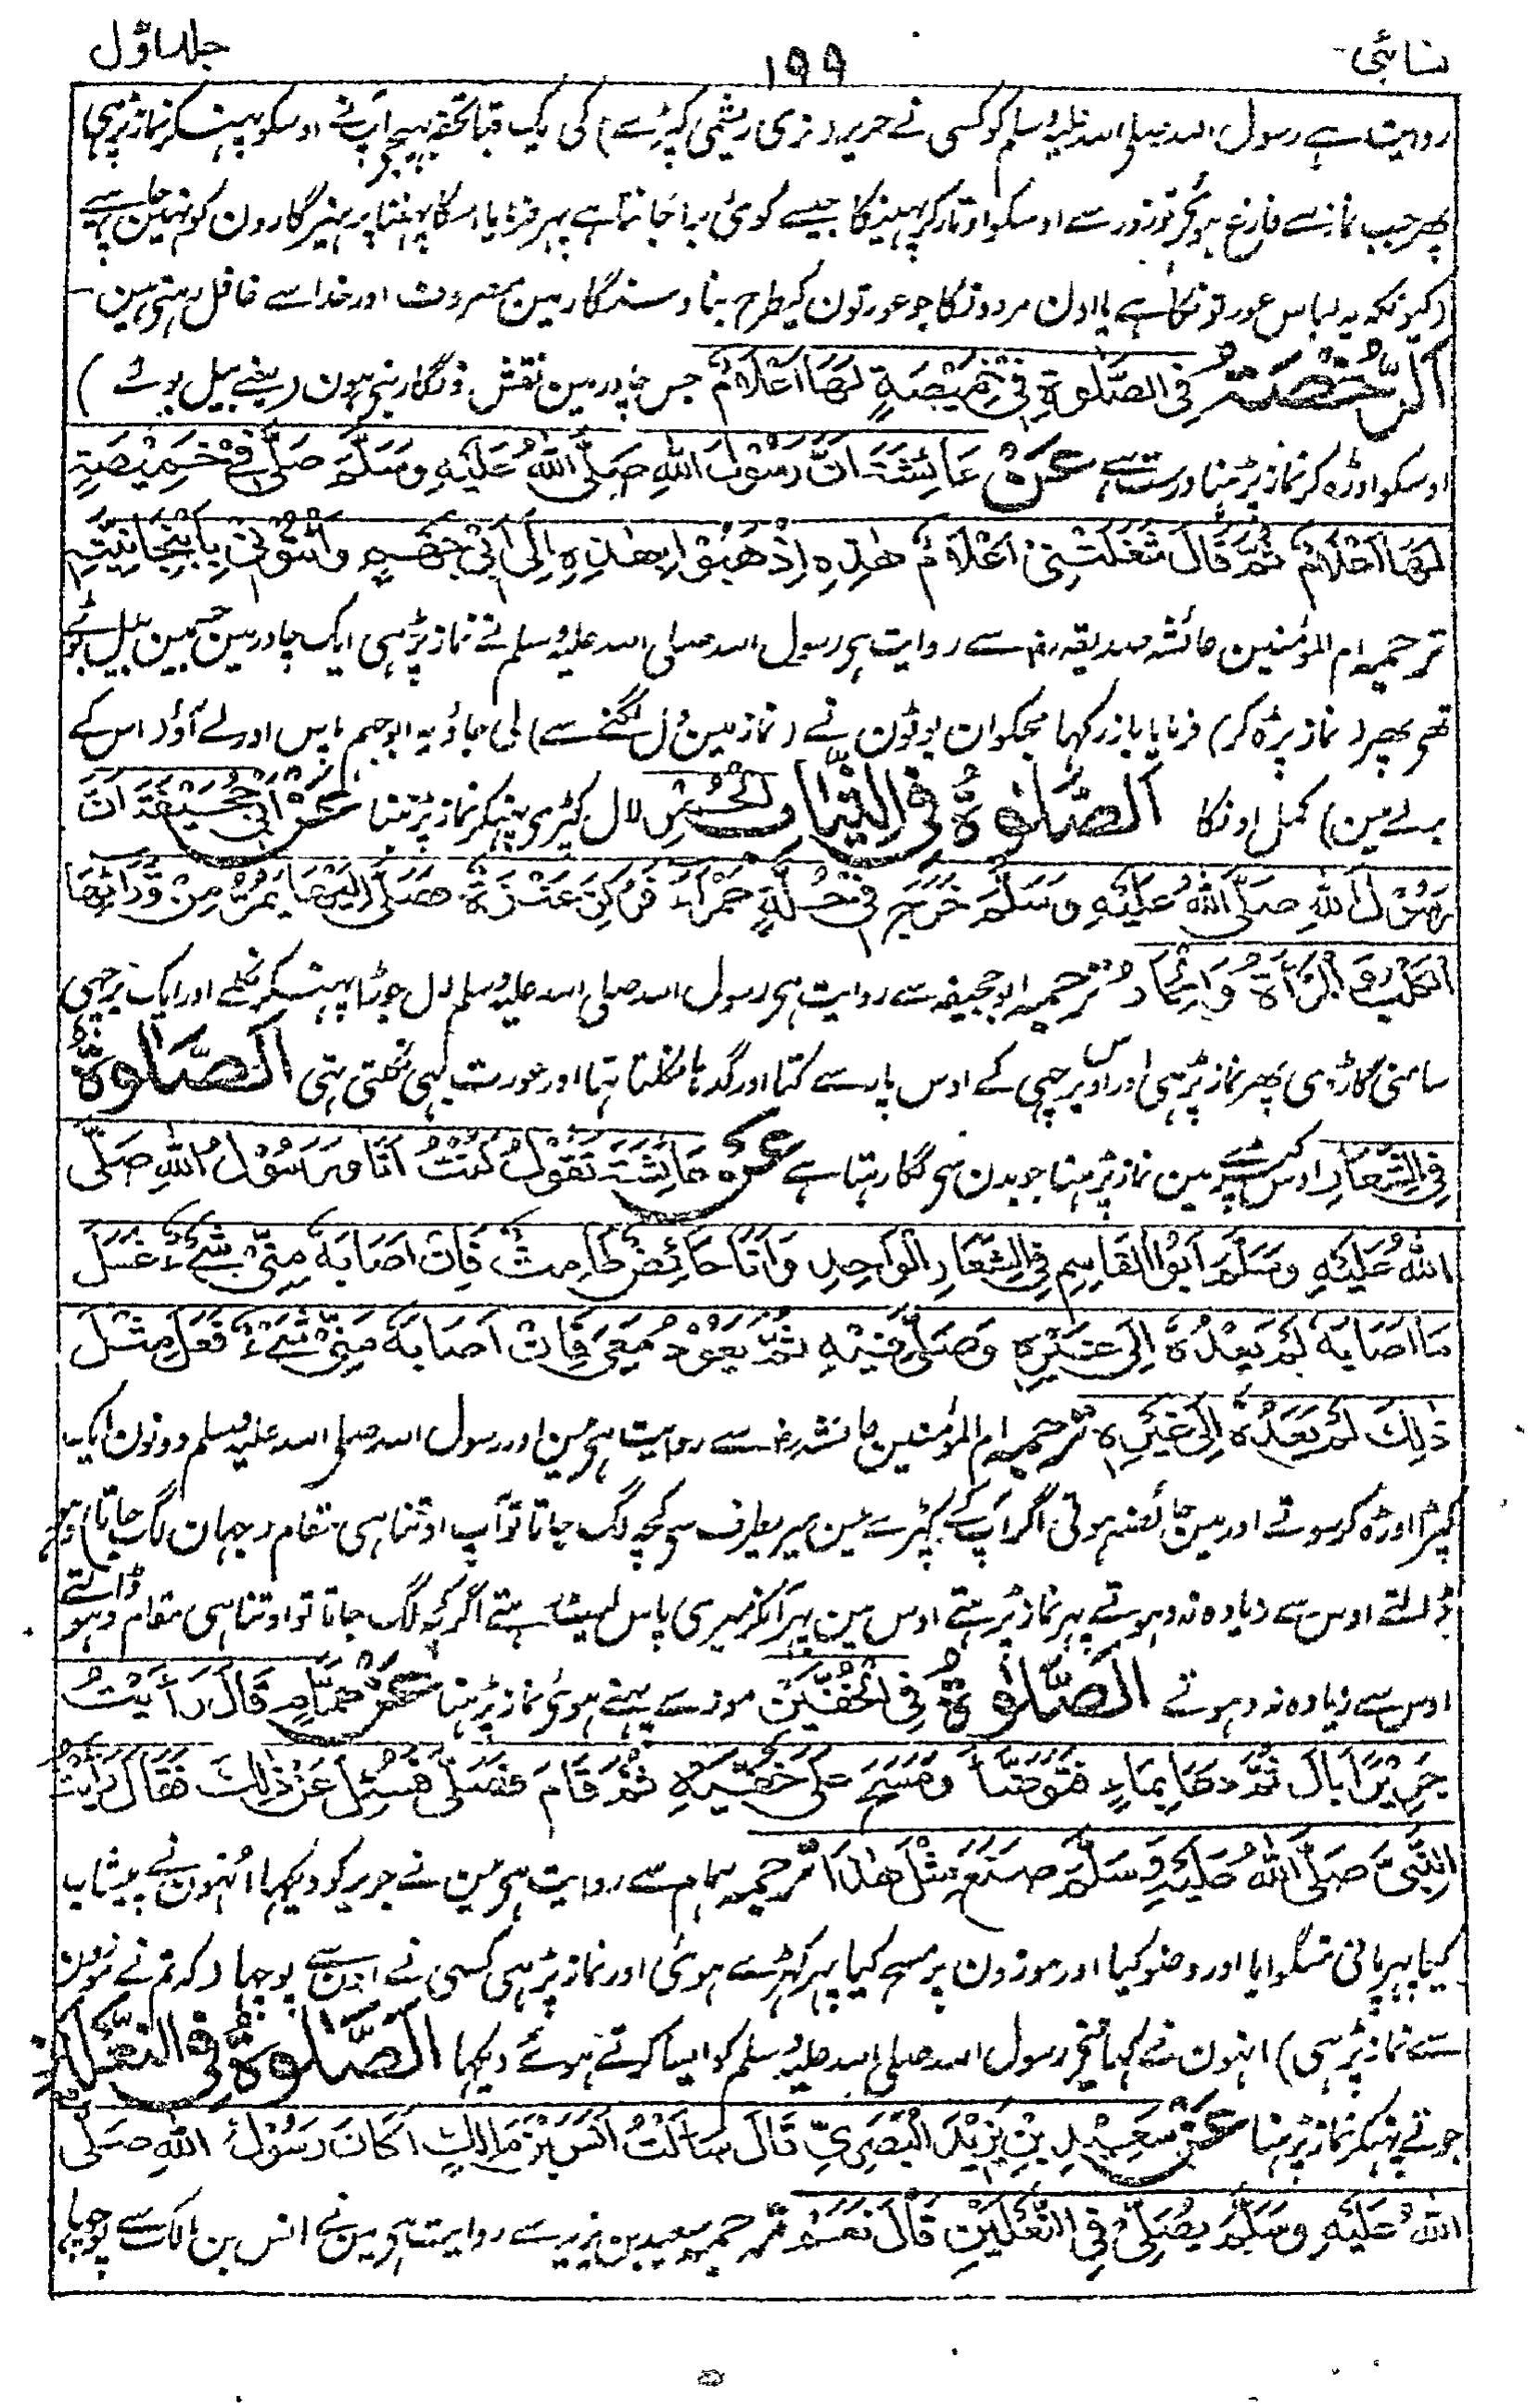 نسائی
۱۹۹
جلد اوّل
روایت ہے رسول اللہ صلی اللہ علیہ وسلم کو کسی نے حریر (نری ریشمی کپڑے) کی یک قبا تحفہ بھیجی آپ نے اوسکو پہنکر نماز پڑہی
پھر جب نماز سے فارغ ہو چکے تو زور سے اوسکو اوتار کر پہینکا جیسے کوئی برا جانتا ہے پہر فرمایا اسکا پہننا پرہیزگارون کو نہین چاہیے
(کیونکہ یہ لباس عورتونکا ہے یا اون مردونکا جو عورتون کیطرح بناو سنگار مین مصروف اور خدا سے غافل رہتی ہین-
اَلرُّخْصَةُ فِی الصَّلٰوةِ فِیْ خَمِیْصَةٍ لَهَا اَعْلَامٌ جس چادر مین نقش ونگار بنی ہون (یعنے بیل بوٹے)
اوسکو اوڑہ کر نماز پڑہنا درست ہے عَنْ عَائِشَةَ اَنَّ رَسُوْلَ اللّٰهِ صَلَّی اللّٰهُ عَلَیْهِ وَسَلَّمَ صَلّٰی فِیْ خَمِیْصَةٍ
لَهَا اَعْلَامٌ ثُمَّ قَالَ شَغَلَتْنِیْ اَعْلَامُ هٰذِهِ اِذْهَبُوْا بِهٰذِهِ اِلٰی اَبِیْ جَهْمٍ وَائْتُوْنِیْ بِاَنْبِجَانِیَّتِهِ
ترجمہ ام المؤمنین عائشہ صدیقہ رضہ سے روایت ہی رسول اللہ صلی اللہ علیہ وسلم نے نماز پڑہی ایک چادر مین جسمین بیل بوٹے
تھی پھر (نماز پڑہ کر) فرمایا باز رکہا مجکو ان بوٹون نے (نماز مین دل لگنے سے) لی جاؤ یہ ابو جہم پاس اور لے آؤ (اس کے
بدلے مین) کمل اونکا اَلصَّلٰوةُ فِی الثِّیَابِ الْحُمْرِ لال کپڑی پہنکر نماز پڑہنا عَنْ اَبِیْ جُحَیْفَةَ اَنَّ
رَسُوْلَ اللّٰهِ صَلَّی اللّٰهُ عَلَیْهِ وَسَلَّمَ خَرَجَ فِیْ حُلَّةٍ حَمْرَآءَ فَرَکَزَ عَنَزَةً فَصَلّٰی اِلَیْهَا یَمُرُّ مِنْ وَّرَائِهَا
الْکَلْبُ وَ الْمَرْأَةُ وَالْحِمَارُ ترجمہ ابو جحیفہ سے روایت ہی رسول اللہ صلی اللہ علیہ وسلم لال جوڑا پہنکر نکلے اور ایک برچہی
سامنی گاڑدی پھر نماز پڑہی اور اوس برچہی کے اوس پار سے کتا اور گدہا نکلتا تہا اور عورت بہی نکلتی تہی اَلصَّلٰوةُ
فِی الشِّعَارِ اوس کپڑے مین نماز پڑہنا جو بدن سی لگا رہتا ہے عَنْ عَائِشَةَ تَقُوْلُ کُنْتُ اَنَا وَرَسُوْلُ اللّٰهِ صَلَّی
اللّٰهُ عَلَیْهِ وَسَلَّمَ اَبُو الْقَاسِمِ فِی الشِّعَارِ الْوَاحِدِ وَاَنَا حَائِضٌ طَامِثٌ فَاِنْ اَصَابَهٗ مِنِّیْ شَیْءٌ غَسَلَ
مَا اَصَابَهٗ لَمْ یَعْدُهُ اِلٰی غَیْرِهِ وَصَلّٰی فِیْهِ ثُمَّ یَعُوْدُ مَعِیْ فَاِنْ اَصَابَهٗ مِنِّیْ شَیْءٌ فَعَلَ مِثْلَ
ذٰلِكَ لَمْ یَعْدُهُ اِلٰی غَیْرِهِ ترجمہ ام المؤمنین عائشہ رضہ سے روایت ہی مین اور رسول اللہ صلی اللہ علیہ وسلم دونون ایک
کپڑا اوڑہ کر سوتے اور مین حائضہ ہوتی اگر آپ کے کپڑے مین میریطرف سی کچہ لگ جاتا تو آپ اوتنا ہی مقام (جہان لگ جاتا) دہو
ڈالتے اوس سے زیادہ نہ دہوتے پہر نماز پڑہتے اوس مین پہر آنکر میری پاس لیٹ رہتے اگر کچہ لگ جاتا تو اوتنا ہی مقام دہو ڈالتے
اوس سے زیادہ نہ دہوتے اَلصَّلٰوةُ فِی الْخُفَّیْنِ موزے پہنے ہوی نماز پڑہنا عَنْ هَمَّامٍ قَالَ رَأَیْتُ
جَرِیْرًا بَالَ ثُمَّ دَعَا بِمَاءٍ فَتَوَضَّأَ وَمَسَحَ عَلٰی خُفَّیْهِ ثُمَّ قَامَ فَصَلّٰی فَسُئِلَ عَنْ ذٰلِكَ فَقَالَ رَأَیْتُ
النَّبِیَّ صَلَّی اللّٰهُ عَلَیْهِ وَسَلَّمَ صَنَعَ مِثْلَ هٰذَا ترجمہ ہمام سے روایت ہی مین نے جریر کو دیکہا اُنہون نے پیشاب
کیا پہر پانی منگوایا اور وضو کیا اور موزون پر مسح کیا پہر کہڑے ہوی اور نماز پڑہی کسی نے اون سے پوچہا (کہ تم نے موزون
سے نماز پڑہی) انہون نے کہا مینے رسول اللہ صلی اللہ علیہ وسلم کو ایسا کرتے ہوئے دیکہا اَلصَّلٰوةُ فِی النَّعْلَیْنِ
جوتے پہنکر نماز پڑہنا عَنْ سَعِیْدِ بْنِ یَزِیْدَ الْبَصَرِیِّ قَالَ سَاَلْتُ اَنَسَ بْنَ مَالِكٍ اَکَانَ رَسُوْلُ اللّٰهِ صَلَّی
اللّٰهُ عَلَیْهِ وَسَلَّمَ یُصَلِّیْ فِی النَّعْلَیْنِ قَالَ نَعَمْ ترجمہ سعید بن یزید سے روایت ہی مین نے انس بن مالک سے پوچہا